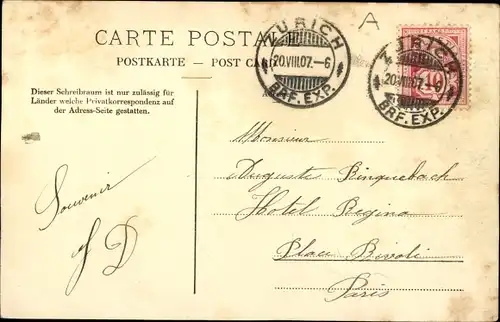 A
CARTE POSTALE
POSTKARTE — POST CA
Dieser Schreibraum ist nur zulässig für
Länder welche Privatkorrespondenz auf
der Adress-Seite gestatten.
ZÜRICH
20.VIII.07.–6
BRF. EXP.
ZÜRICH
20.VIII.07.–6
BRF. EXP.
10
Souvenir
D
Monsieur
Auguste Rinquebach
Hotel Regina
Place Rivoli
Paris